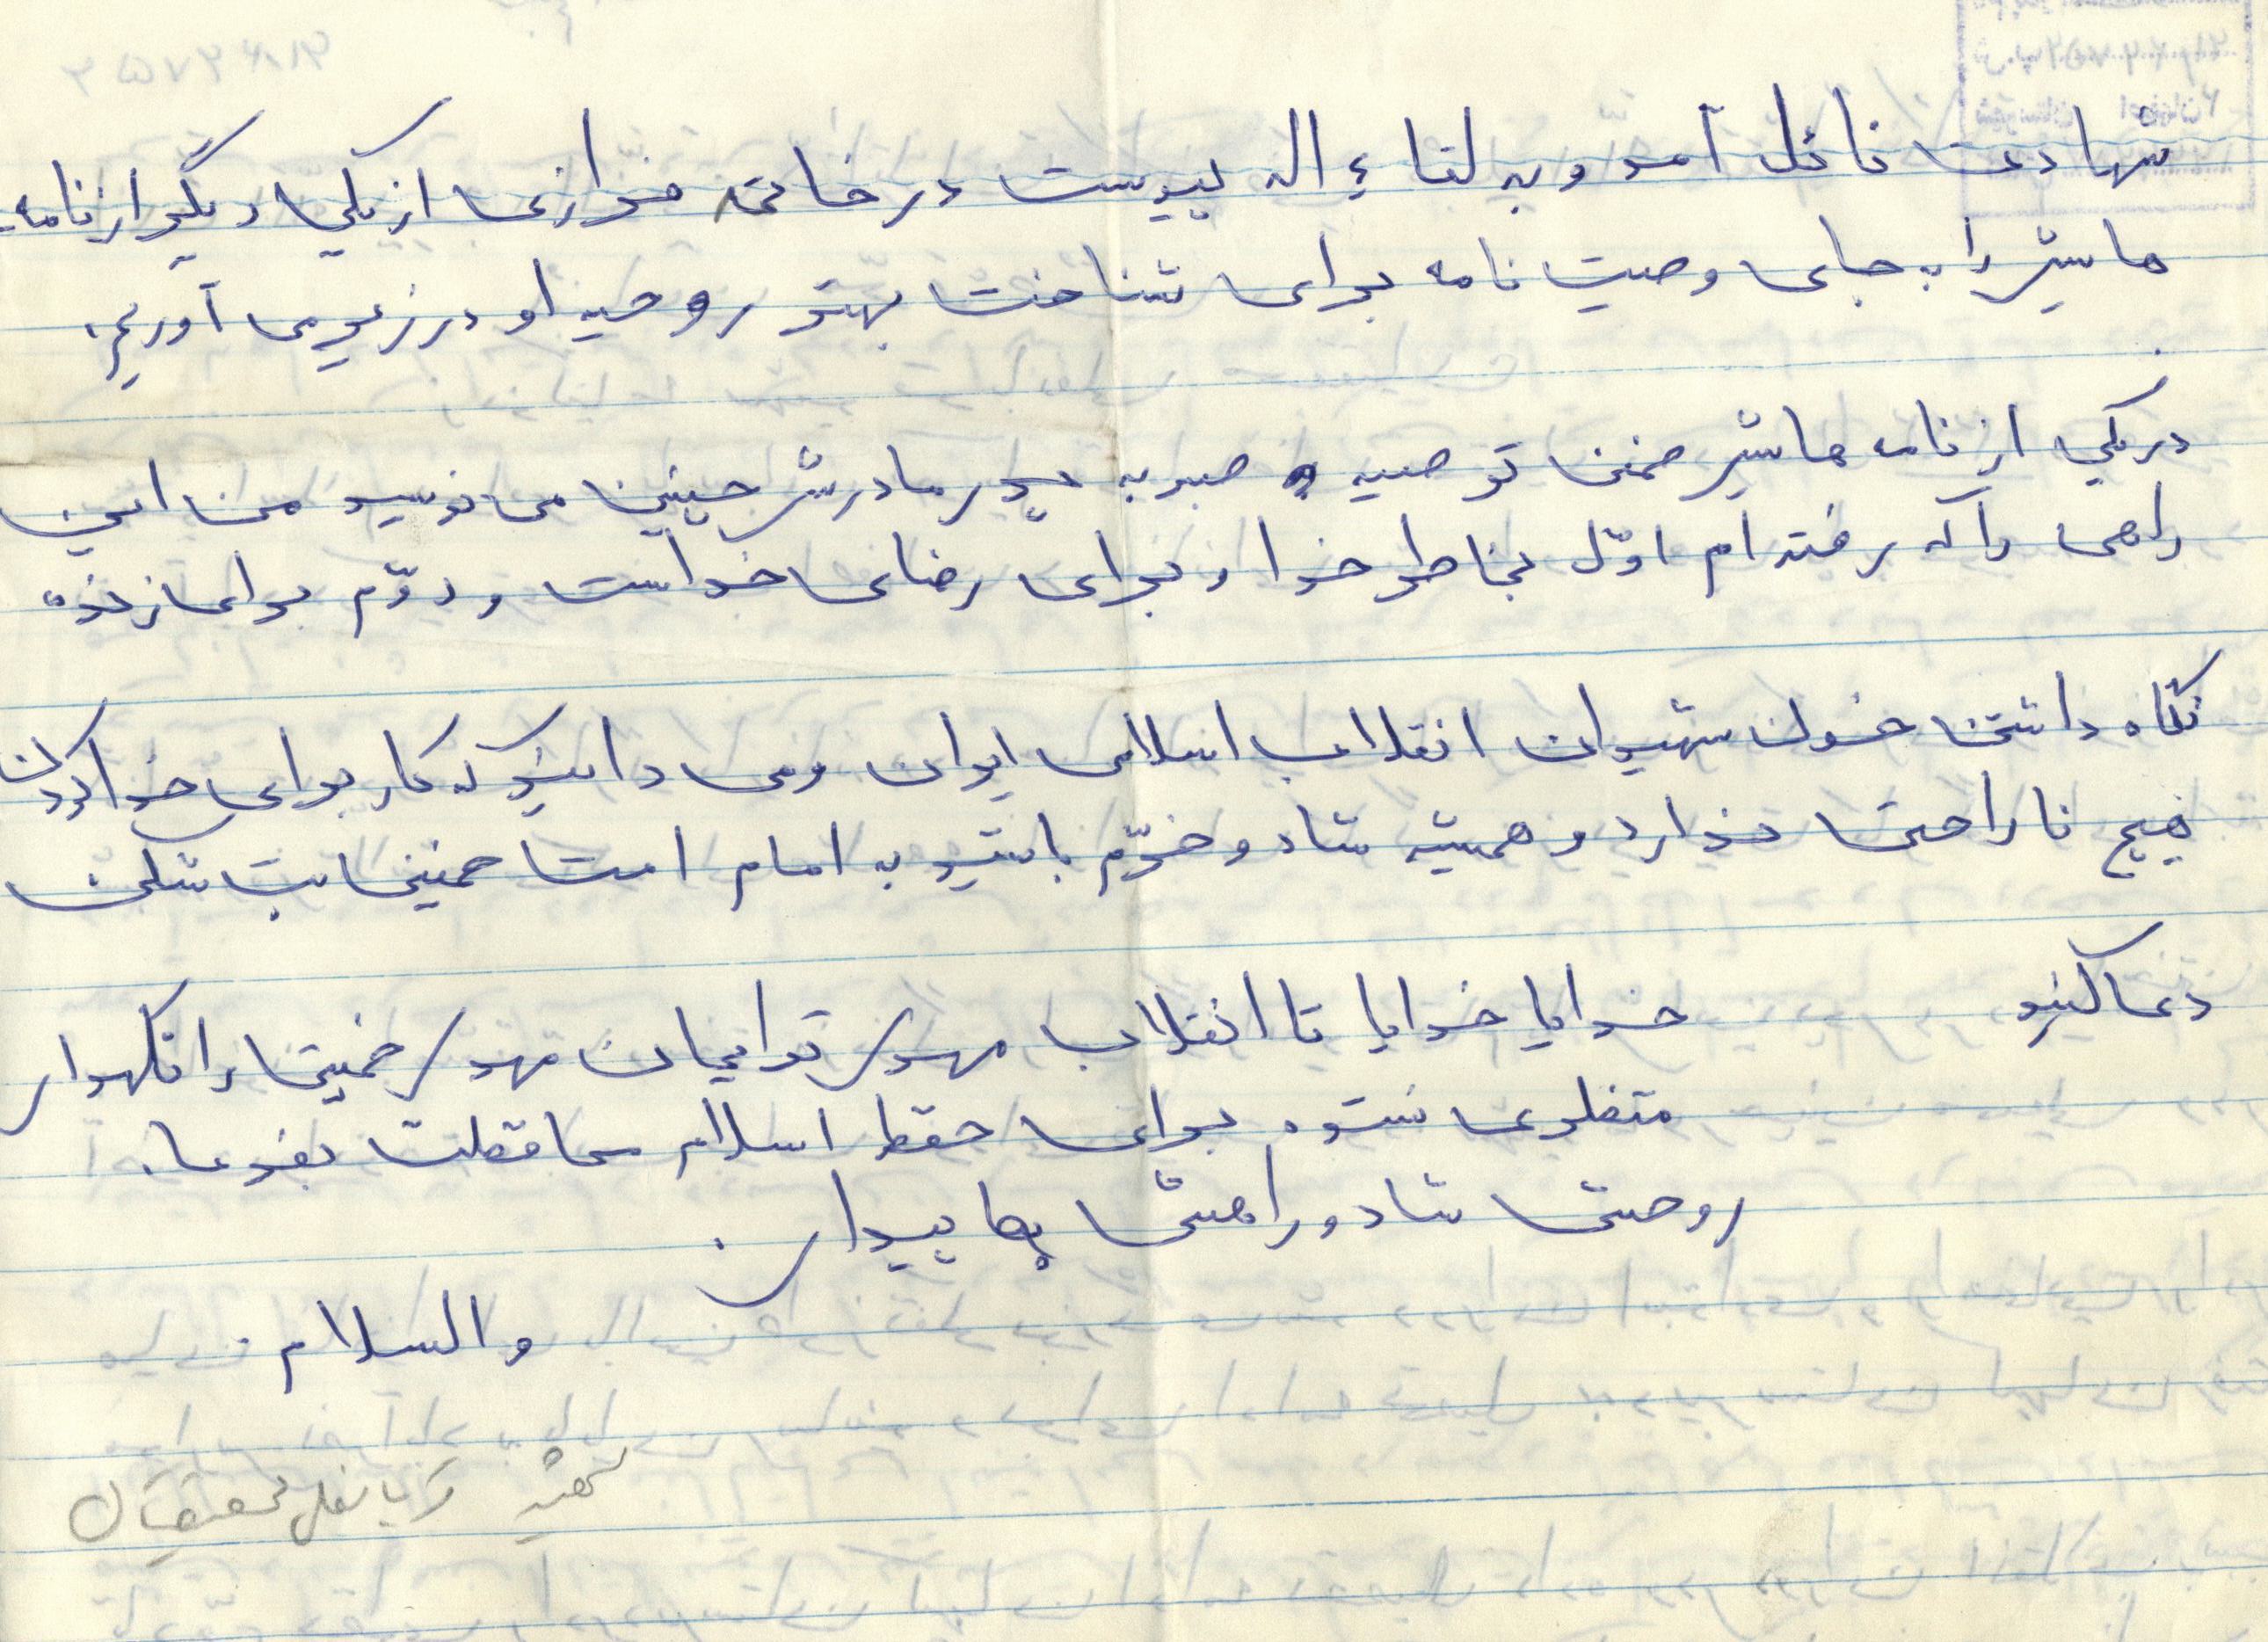 شهادت نائل آمد و به لقاء اله پیوست در خاتمه فرازی از یکی دیگر از نامه
هایش را به جای وصیت نامه برای شناخت بهتر روحیه او در زیر می آوریم.
در یکی از نامه هایش ضمن توصیه صبر به پدر مادرش چنین می نویسد من این
راهی را که رفته ام اوّل بخاطر خدا و برای رضای خداست و دوّم برای زنده
نگاه داشتن خون شهیدان انقلاب اسلامی ایران و می دانید که کار برای خدا کردن
هیچ ناراحتی ندارد و همیشه شاد و خرّم باشید به امام امت خمینی بت شکن
دعا کنید خدایا خدایا تا انقلاب مهدی تو را بجان مهدی خمینی را نگهدار
منتظری نستوه برای حفظ اسلام محافظت بفرما.
روحش شاد و راهش پایدار.
والسلام.
شهید